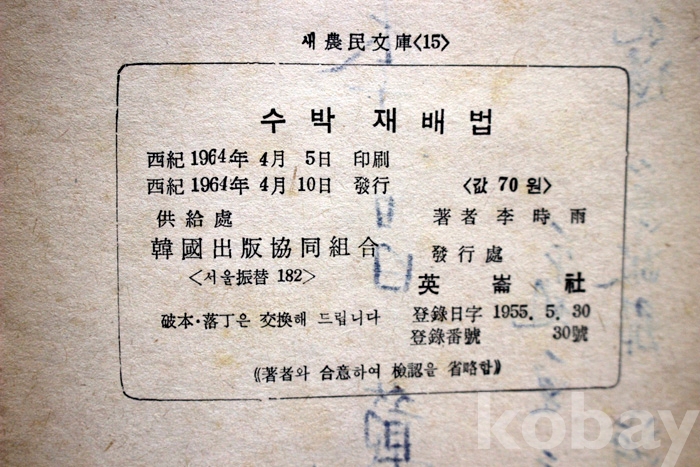 새農民文庫<15>
수박 재배법
西紀 1964年 4月 5日 印刷
西紀 1964年 4月 10日 發行
<값 70원>
供給處
著者 李時雨
韓國出版協同組合
發行處
<서울振替 182>
英崙社
破本·落丁은 交換해 드립니다
登錄日字 1955. 5. 30
登錄番號 30號
《著者와 合意하여 檢認을 省略함》
kobay